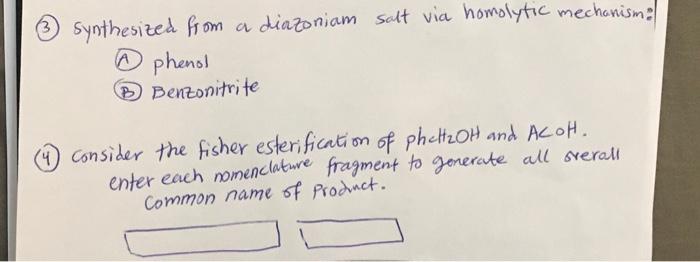 ③ synthesized from a diazoniam salt via homolytic mechanism:
Ⓐ phenol
Ⓑ Benzonitrite
④ consider the fisher esterification of phcH2OH and ACOH.
enter each nomenclature fragment to generate all overall
Common name of Product.